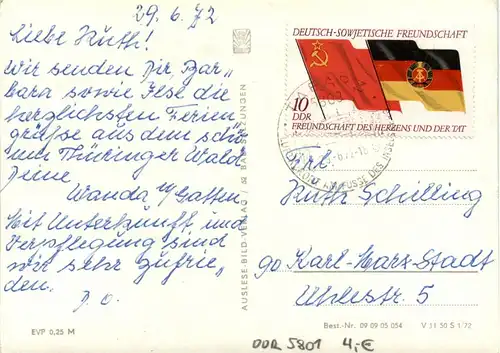 29.6.72
Liebe Ruth!
Wir senden Dir, Bar„
bara sowie Ilse die
herzlichsten Ferien
grüße aus dem schö„
nen Thüringer Wald
Deine
Wanda u/Gatten
Mit Unterkunft, und
Verpflegung sind
wir sehr zufrie„
den.
D.O.
EVP 0,25 M
AUSLESE-BILD-VERLAG / 62 BAD SALZUNGEN
DEUTSCH-SOWJETISCHE FREUNDSCHAFT
10
DDR
FREUNDSCHAFT DES HERZENS UND DER TAT
TABARZ
AM FUSSE DES INSELSBERGES
Frl.
Ruth Schilling
90 Karl-Marx-Stadt
Uhlestr. 5
Best.-Nr. 09 09 05 054
V 11 50 S 1 72
DDR 5801
4,-€